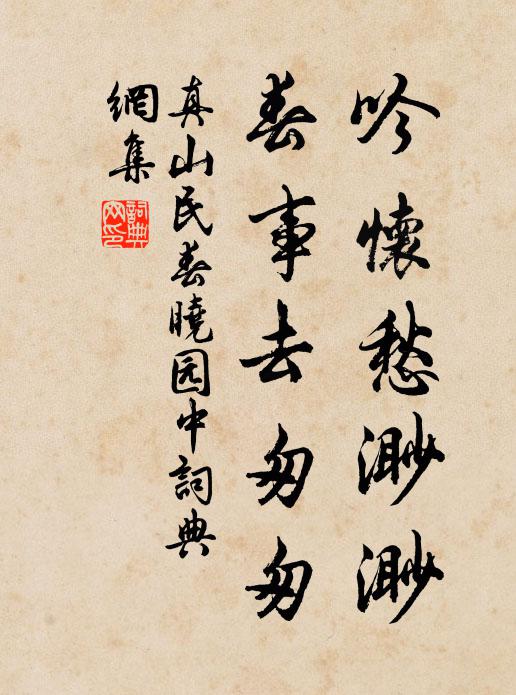 吟懷愁渺渺
春事去匆匆
真山民春曉园中詞典
網集
詞典
网印